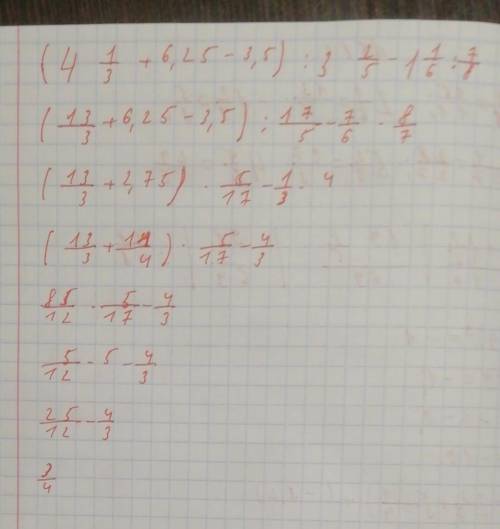 (4 1/3 + 6,25 - 3,5) : 3 2/5 - 1 1/6 : 7/8
(13/3 + 6,25 - 3,5) : 17/5 - 7/6 · 8/7
(13/3 + 2,75) · 5/17 - 1/3 · 4
(13/3 + 11/4) · 5/17 - 4/3
85/12 · 5/17 - 4/3
5/12 · 5 - 4/3
25/12 - 4/3
3/4